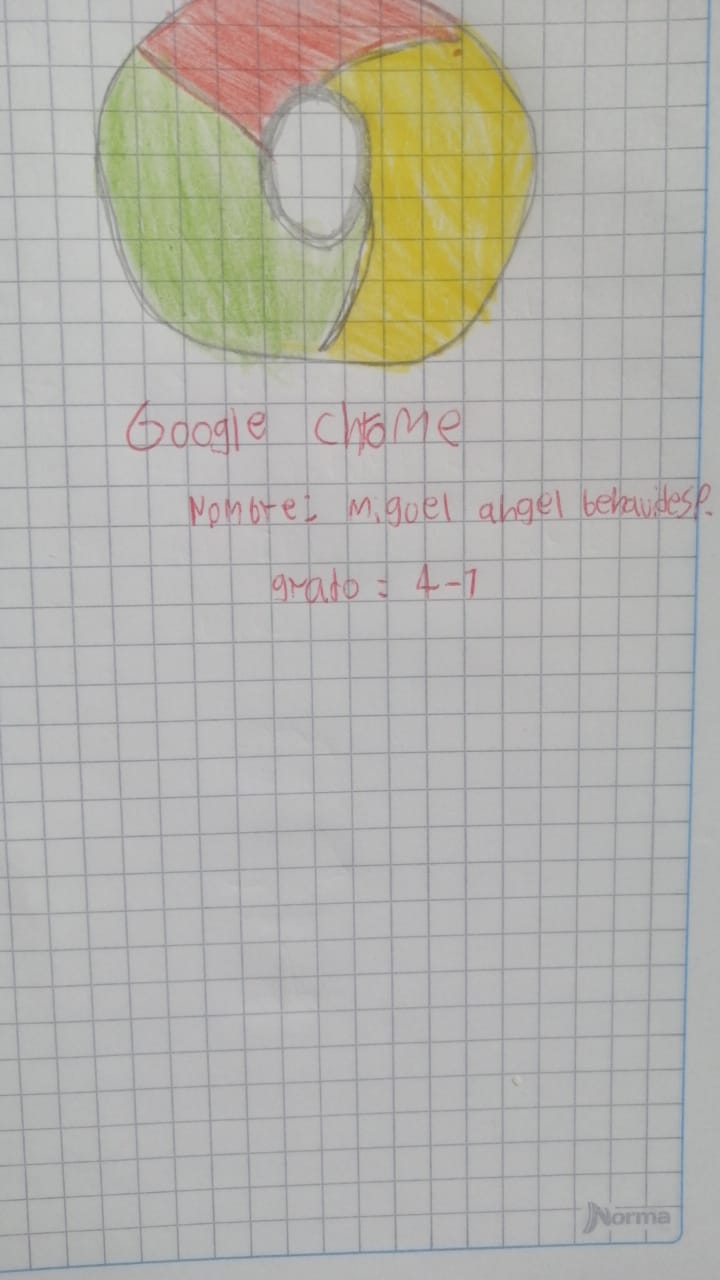 Google chrome
Nombre: Miguel angel behavides P.
grado = 4-1
Norma